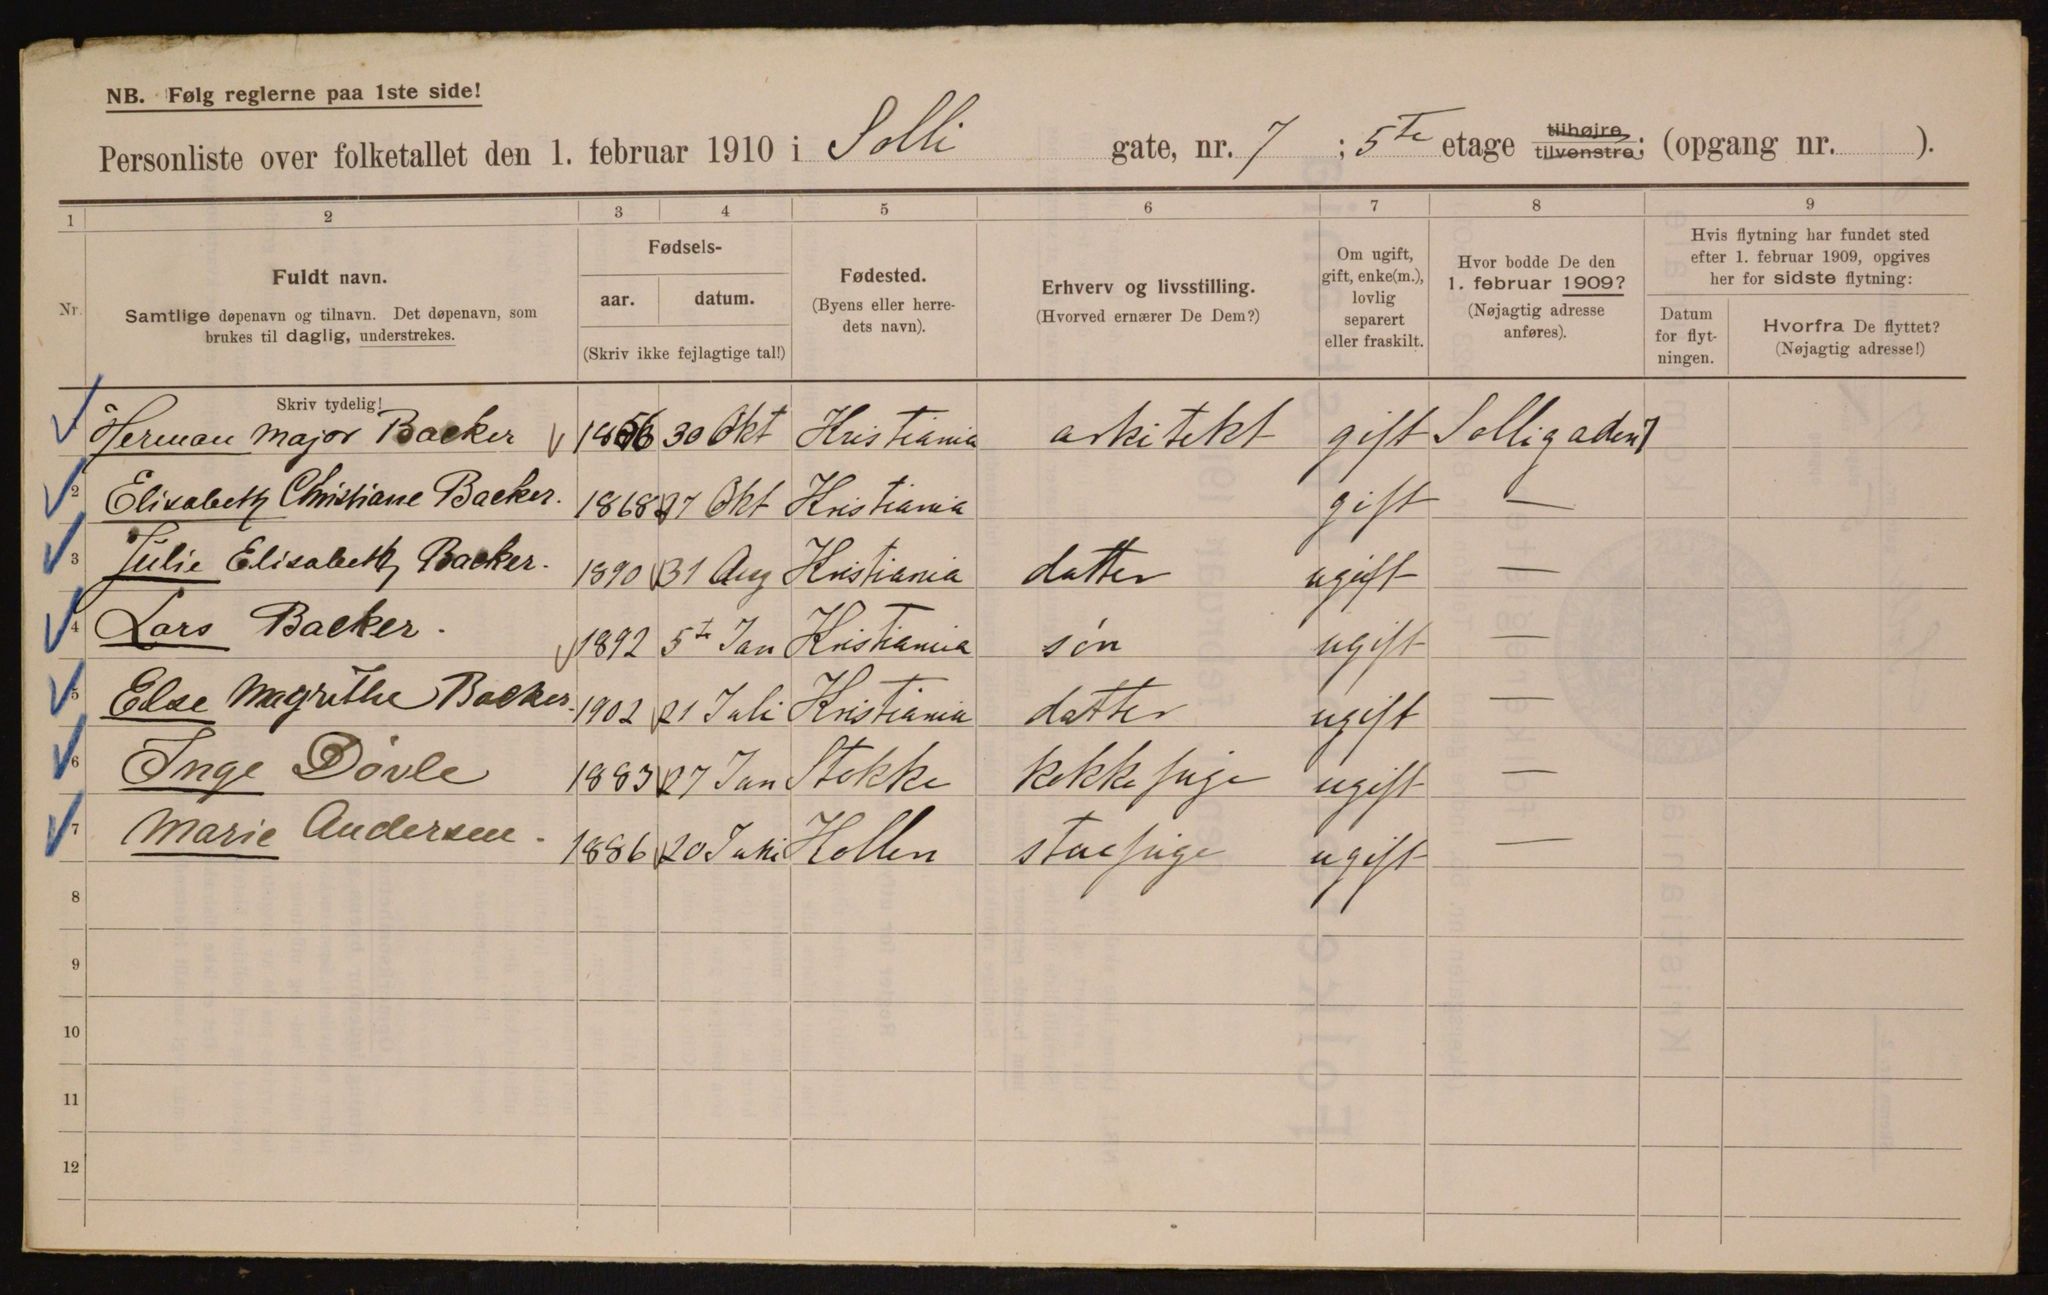 NB. Følg reglerne paa 1ste side!
Personliste over folketallet den 1. februar 1910 i Solli gate, nr. 7 ; 5te etage tilhøjre tilvenstre; (opgang nr. ).
1 2 3 4 5 6 7 8 9
Nr.
Fuldt navn.
Samtlige døpenavn og tilnavn. Det døpenavn, som
brukes til daglig, understrekes.
Fødsels-
aar. datum.
(Skriv ikke fejlagtige tal!)
Fødested.
(Byens eller herre-
dets navn).
Erhverv og livsstilling.
(Hvorved ernærer De Dem?)
Om ugift,
gift, enke(m.),
lovlig
separert
eller fraskilt.
Hvor bodde De den
1. februar 1909?
(Nøjagtig adresse
anføres).
Hvis flytning har fundet sted
efter 1. februar 1909, opgives
her for sidste flytning:
Datum
for flyt-
ningen.
Hvorfra De flyttet?
(Nøjagtig adresse!)
Skriv tydelig!
Herman Major Backer 1856 30 Okt Kristiania arkitekt gift Solligaden 7
2 Elisabeth Christiane Backer. 1868 27 Okt Kristiania gift —
3 Julie Elisabeth Backer. 1890 31 Aug Kristiania datter ugift —
4 Lars Backer. 1892 5te Jan Kristiania søn ugift —
5 Else Magrithe Backer. 1902 21 Juli Kristiania datter ugift —
6 Inge Døvle 1883 27 Jan Stokke kokkepige ugift —
7 Marie Andersen. 1886 20 Juni Hollen stuepige ugift —
8
9
10
11
12